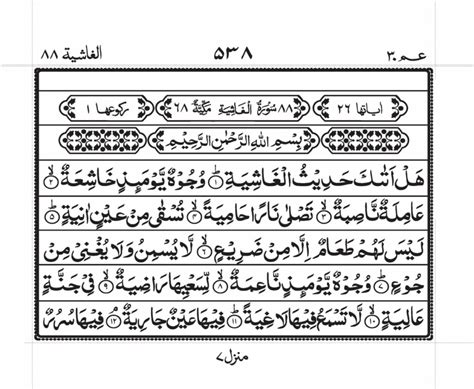 عـم ٣٠ ٥٣٨ الغاشية ٨٨
اٰياتها ٢٦ ٨٨ سُوْرَةُ الْغَاشِيَةِ مَكِّيَّةٌ ٦٨ ركوعها ١
بِسْمِ اللهِ الرَّحْمٰنِ الرَّحِيْمِ
هَلْ اَتٰىكَ حَدِيْثُ الْغَاشِيَةِ ۝١ وُجُوْهٌ يَّوْمَئِذٍ خَاشِعَةٌ ۝٢
عَامِلَةٌ نَّاصِبَةٌ ۝٣ تَصْلٰى نَارًا حَامِيَةً ۝٤ تُسْقٰى مِنْ عَيْنٍ اٰنِيَةٍ ۝٥
لَيْسَ لَهُمْ طَعَامٌ اِلَّا مِنْ ضَرِيْعٍ ۝٦ لَّا يُسْمِنُ وَلَا يُغْنِيْ مِنْ
جُوْعٍ ۝٧ وُجُوْهٌ يَّوْمَئِذٍ نَّاعِمَةٌ ۝٨ لِّسَعْيِهَا رَاضِيَةٌ ۝٩ فِيْ جَنَّةٍ
عَالِيَةٍ ۝١٠ لَّا تَسْمَعُ فِيْهَا لَاغِيَةً ۝١١ فِيْهَا عَيْنٌ جَارِيَةٌ ۝١٢ فِيْهَا سُرُرٌ
منزل ٧